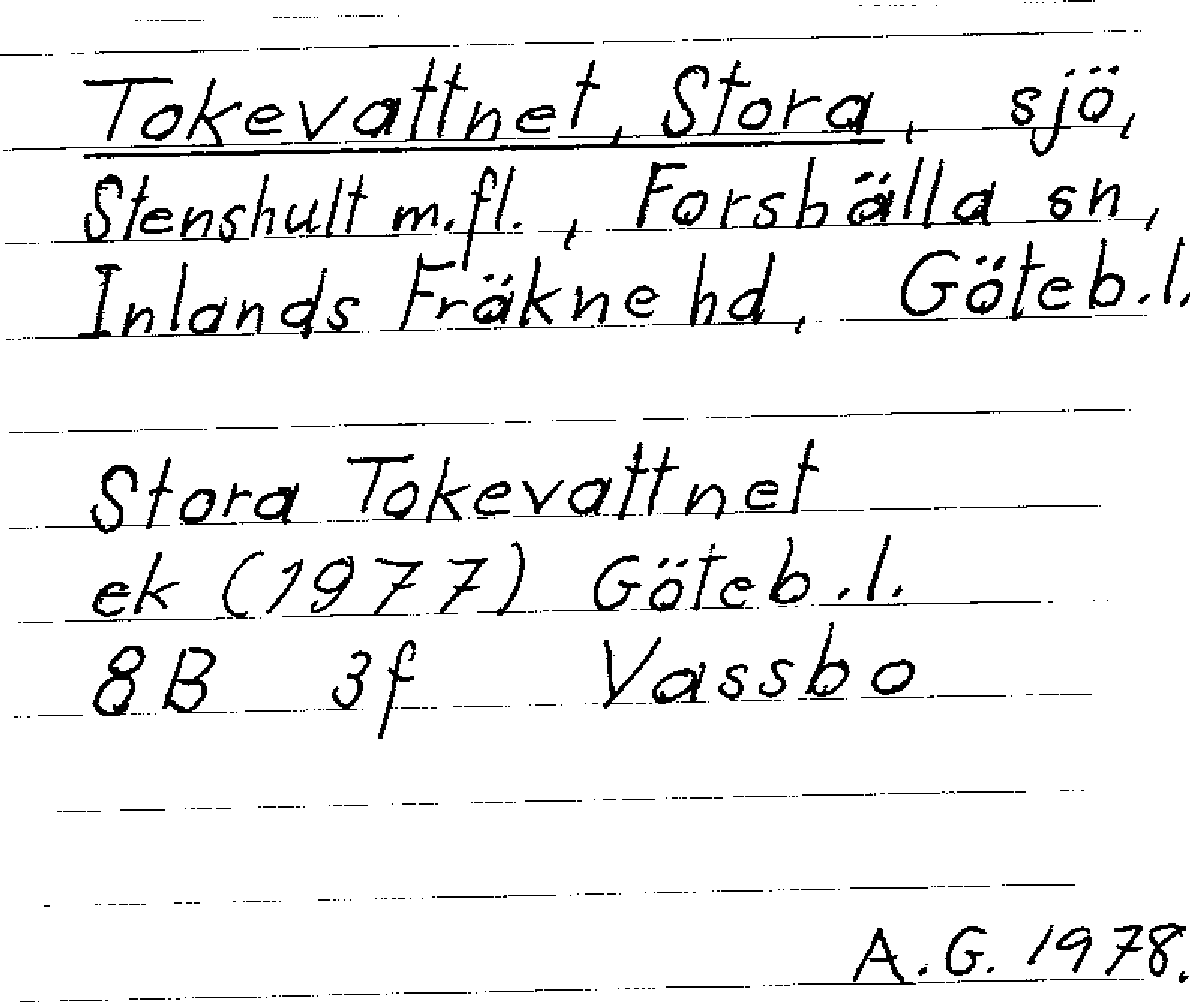 Tokevattnet, Stora, sjö,
Stenshult m.fl., Forshälla sn,
Inlands Fräkne hd, Göteb.l.
Stora Tokevattnet
ek (1977) Göteb.l.
8B 3f Vassbo
A.G. 1978.